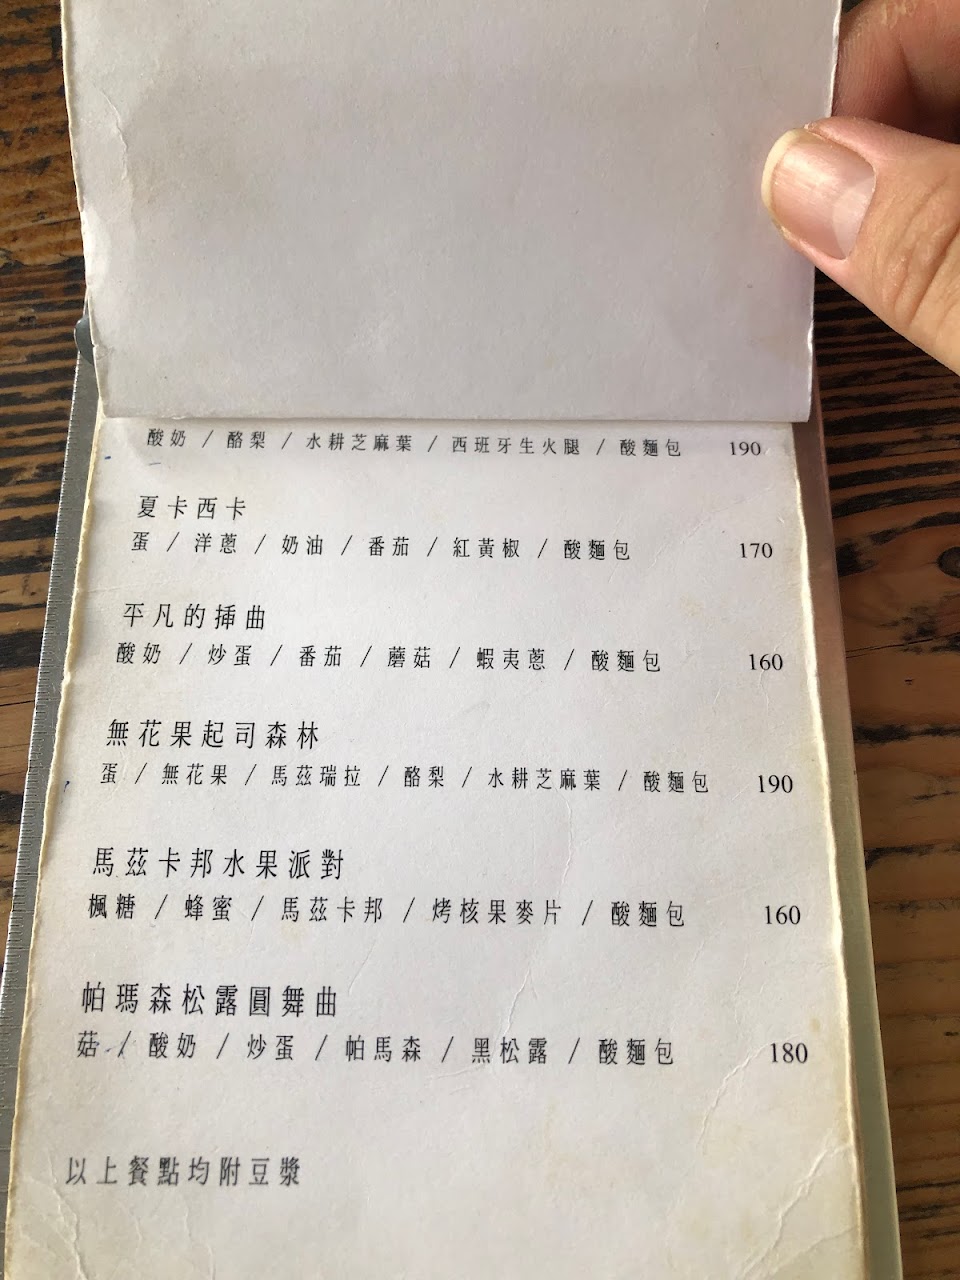 酸奶 / 酪梨 / 水耕芝麻葉 / 西班牙生火腿 / 酸麵包 190
夏卡西卡
蛋 / 洋蔥 / 奶油 / 番茄 / 紅黃椒 / 酸麵包 170
平凡的插曲
酸奶 / 炒蛋 / 番茄 / 蘑菇 / 蝦夷蔥 / 酸麵包 160
無花果起司森林
蛋 / 無花果 / 馬茲瑞拉 / 酪梨 / 水耕芝麻葉 / 酸麵包 190
馬茲卡邦水果派對
楓糖 / 蜂蜜 / 馬茲卡邦 / 烤核果麥片 / 酸麵包 160
帕瑪森松露圓舞曲
菇 / 酸奶 / 炒蛋 / 帕馬森 / 黑松露 / 酸麵包 180
以上餐點均附豆漿